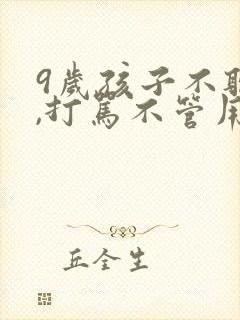 9歲孩子不
,打罵不管用
丘全生